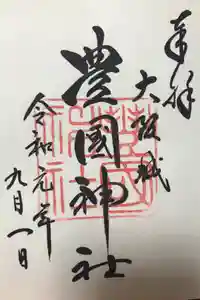 奉拝
大阪城
豊國神社
令和元年
九月一日